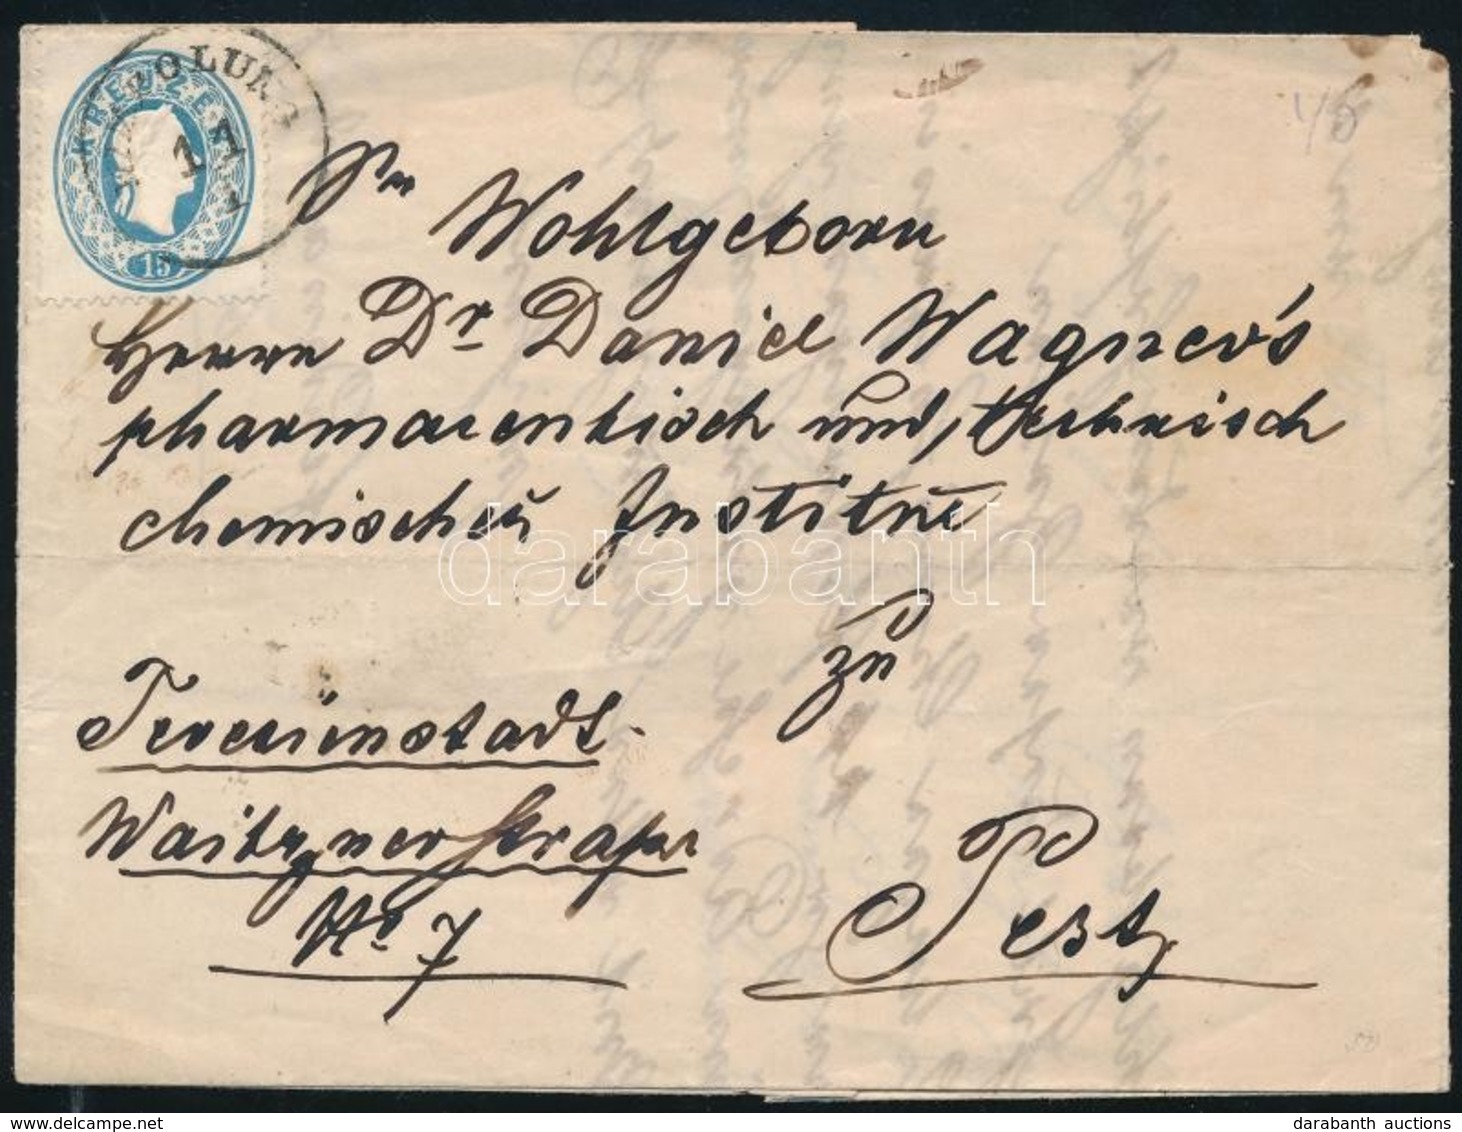 KREUZER
15
11
Sr Wohlgeborn
Herrn Dr Daniel Wagner's
pharmaceutisch und technisch
chemisches Institut
zu
Teresienstadt.
Waitznerstrasse
No 7
Pest
darabanth
darabanth auctions